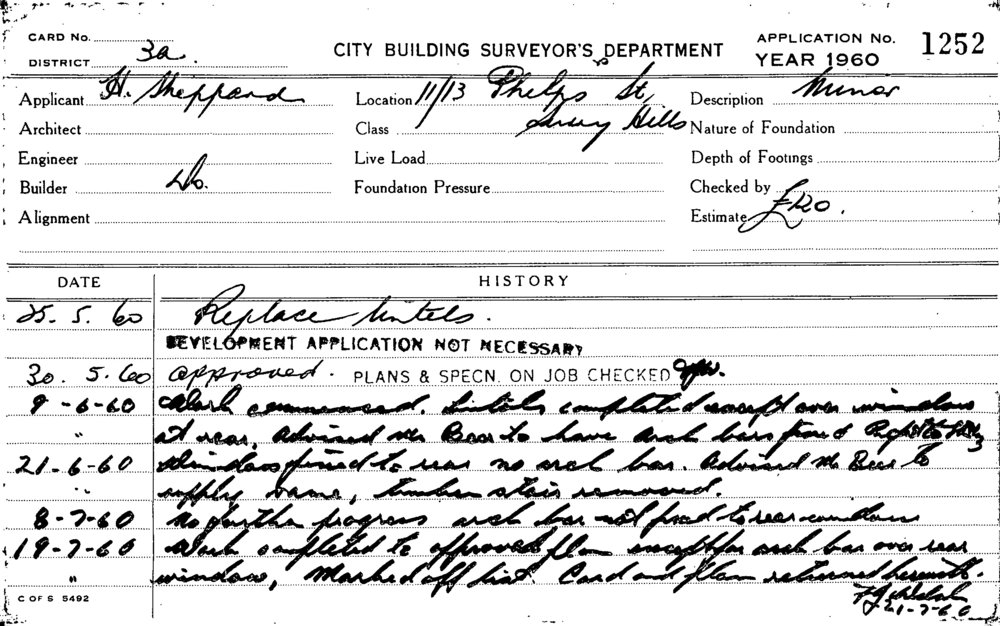 CARD No.
DISTRICT 3a.
CITY BUILDING SURVEYOR'S DEPARTMENT
APPLICATION No. 1252
YEAR 1960
Applicant H. Sheppard Location 11/13 Phelps St, Description Minor
Architect Class Surry Hills Nature of Foundation
Engineer Live Load Depth of Footings
Builder Do. Foundation Pressure Checked by
Alignment Estimate £120.
DATE HISTORY
25. 5. 60 Replace lintels.
DEVELOPMENT APPLICATION NOT NECESSARY
30. 5. 60 approved. PLANS & SPECN. ON JOB CHECKED
9-6-60 Work commenced. Lintels completed except over windows
" at rear, advised Mr Beer to have arch bars fixed
21-6-60 Windows fixed to rear no arch bar. Advised Mr Beer to
" supply same, timber stair removed.
8-7-60 No further progress arch bar not fixed to rear windows
19-7-60 Work completed to approved plan except for arch bar over rear
" window, Marked off list. Card and plan returned herewith.
21-7-60
C OF S 5492